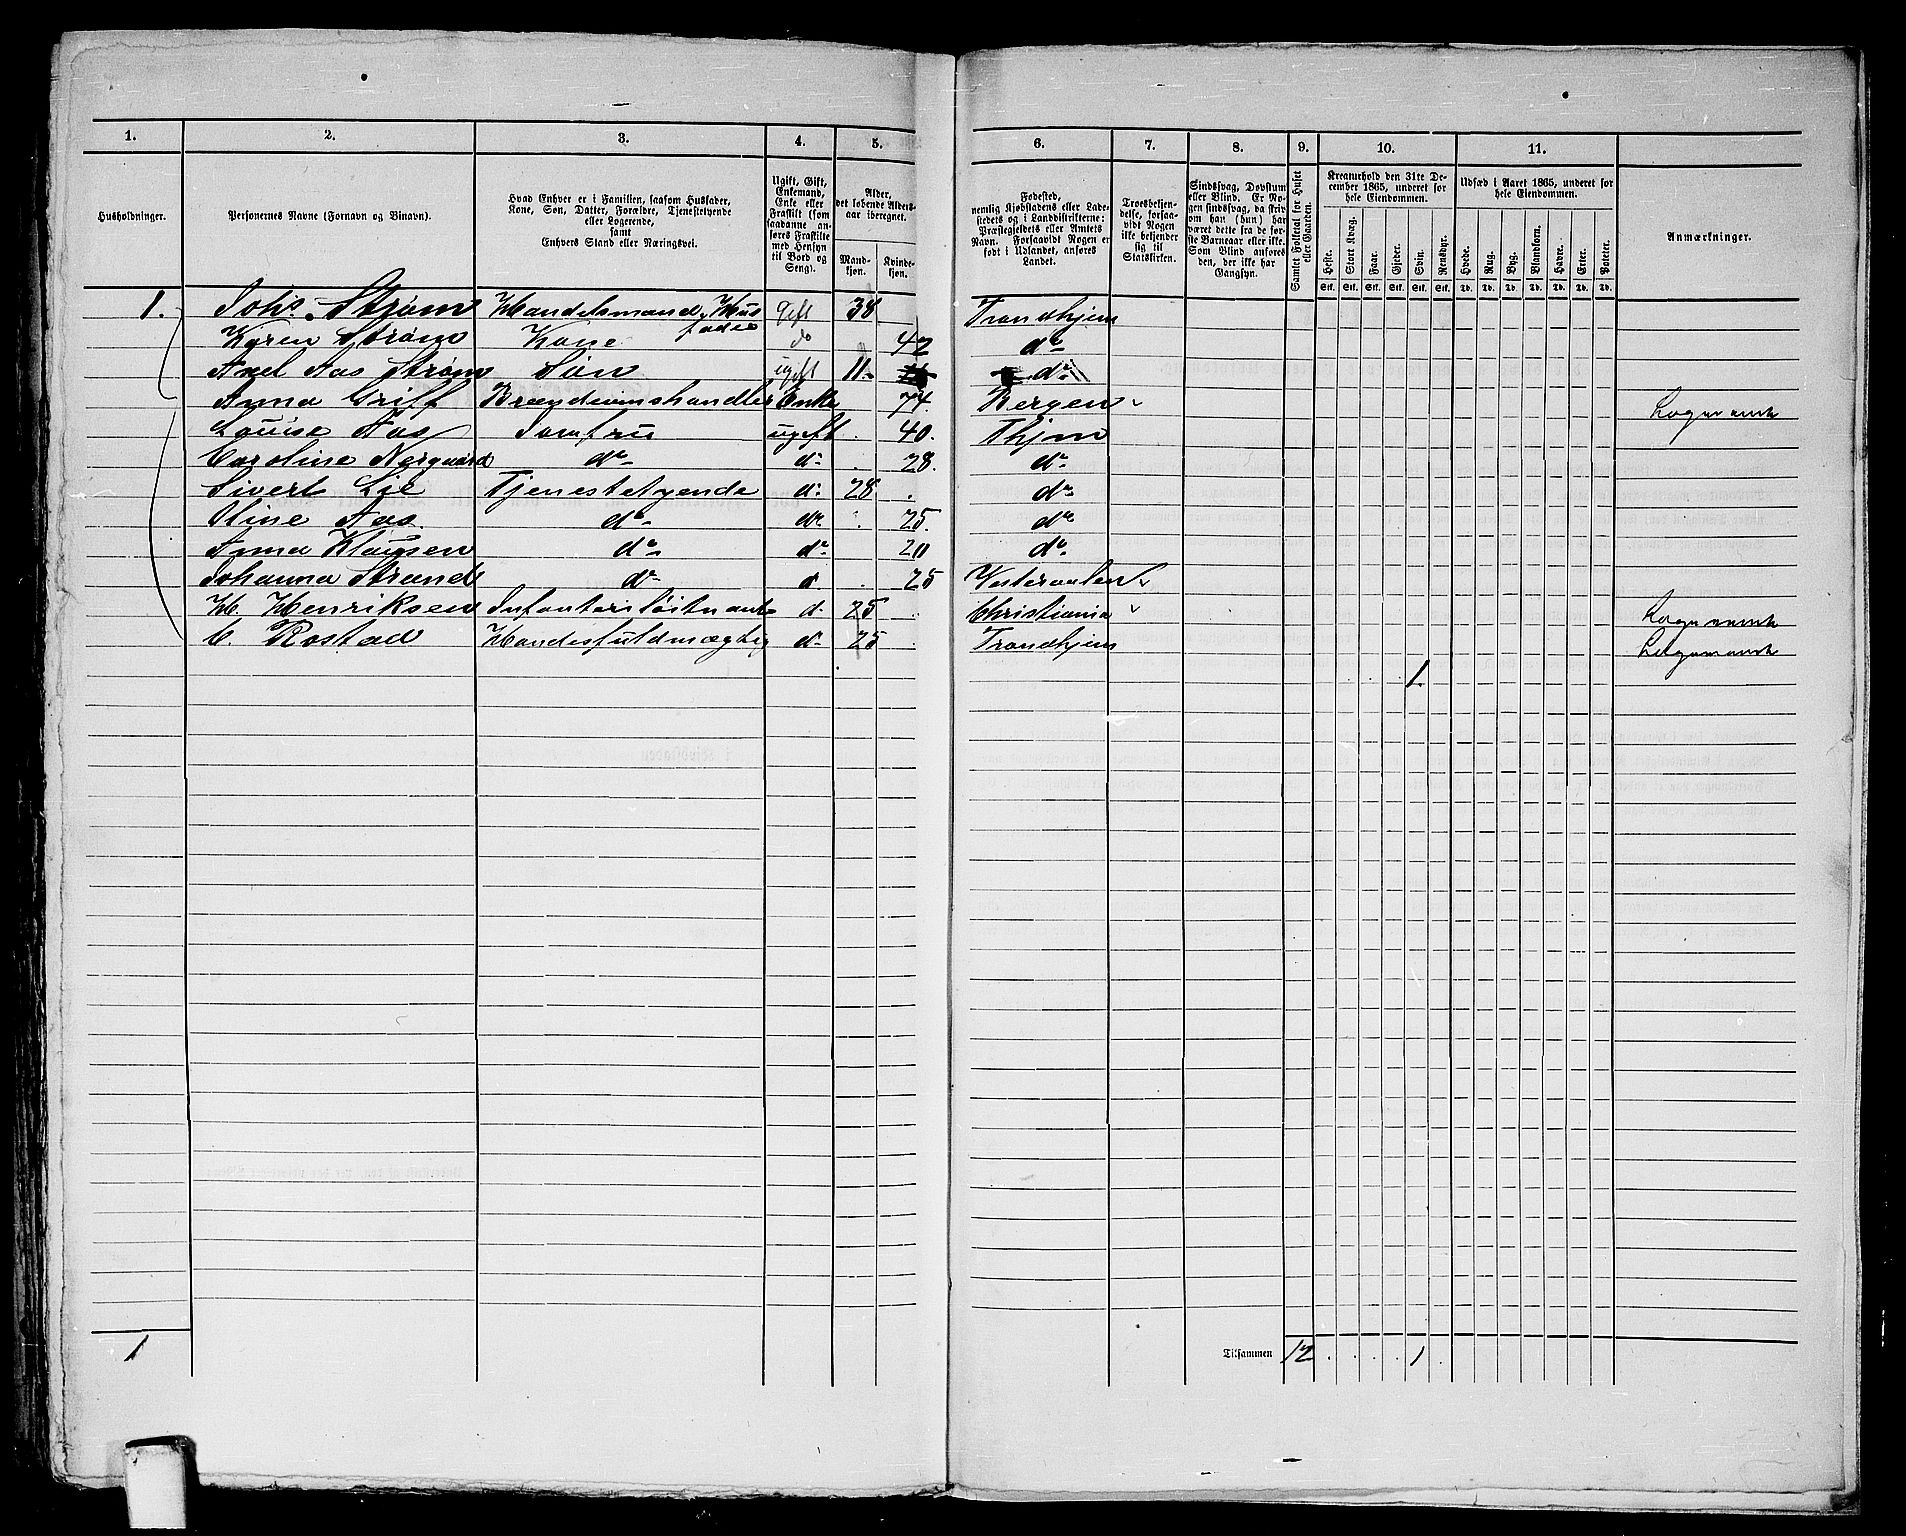 1. 2. 3. 4. 5. 6. 7. 8. 9. 10. 11.
Husholdninger.
Personernes Navne (Fornavn og Binavn).
Hvad Enhver er i Familien, saasom Husfader,
Kone, Søn, Datter, Forældre, Tjenestetyende
eller Logerende,
samt
Enhvers Stand eller Næringsvei.
Ugift, Gift,
Enkemand,
Enke eller
Fraskilt (som
saadanne an-
føres Fraskilte
med Hensyn
til Bord og
Seng).
Alder,
det løbende Alders-
aar iberegnet.
Mand-
kjøn.
Kvinde-
kjøn.
Fødested,
nemlig Kjøbstadens eller Lade-
stedets og i Landdistrikterne:
Præstegjeldets eller Amtets
Navn. Forsaavidt Nogen er
født i Udlandet, anføres
Landet.
Trosbekjen-
delse, forsaa-
vidt Nogen
ikke bekjender
sig til
Statskirken.
Sindssvag, Døvstum
eller Blind. Er No-
gen sindssvag, da skriv
om han (hun) har
været dette fra de før-
ste Barneaar eller ikke.
Som Blind anføres
den, der ikke har
Gangsyn.
Samlet Folketal for Huset
eller Gaarden.
Kreaturhold den 31te De-
cember 1865, underet for
hele Eiendommen.
Heste. Stort Kvæg. Faar. Gjeder. Svin. Rensdyr.
Stk. Stk. Stk. Stk. Stk. Stk.
Udsæd i Aaret 1865, underet for
hele Eiendommen.
Hvede. Rug. Byg. Blandkorn. Havre. Erter. Poteter.
Td. Td. Td. Td. Td. Td. Td.
Anmærkninger.
1. Johs. Strøm Handelsmand, Hus gift 38 Trondhjem
fader
Karen Strøm Kone do 42 do
Axel Aas Strøm Søn ugift 11. do
Anna Griff Brændeviinshandler Enke 74. Bergen Logerende
Louise Aas Jomfru ugift 40. Thjem
Caroline Nergaard do do 28. do
Sivert Lie Tjenestetyende do 28 do
Oline Aas do do 25. do
Anna Klausen do do 20 do
Johanna Strand do d. 25 Vesteraalen
H. Henriksen Infanteriløitnant d. 25 Christiania Logerende
C. Rostad Handelsfuldmægtig do 25 Trondhjem Logerende
1.
1 Tilsammen 12 1